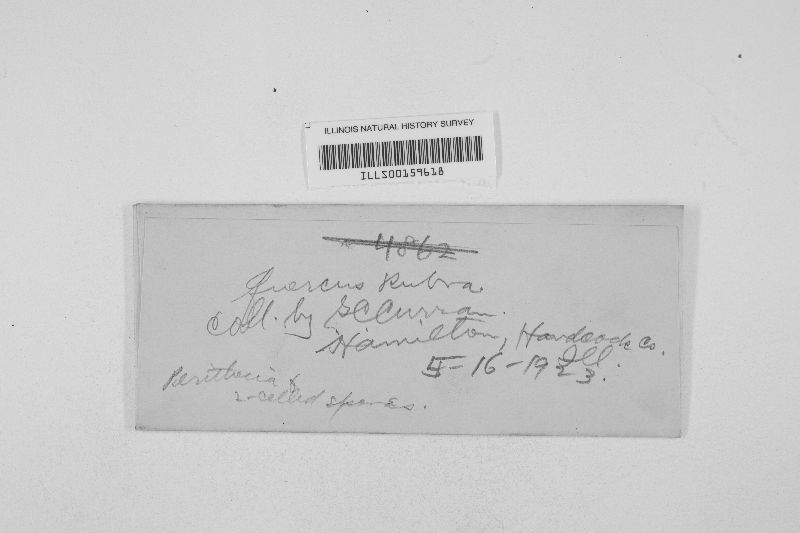 ILLINOIS NATURAL HISTORY SURVEY
ILLS00159618
4862
Quercus Rubra
Coll. by GCCurran.
Hamilton, Handcock Co.
Ill.
5-16-1923.
Perithecia &
2-celled spores.